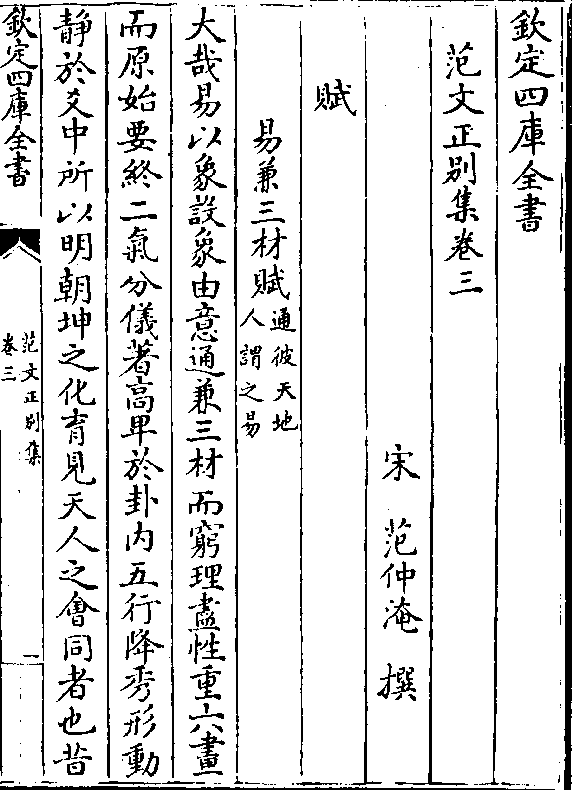 欽定四庫全書
范文正別集卷三
宋 范仲淹 撰
賦
易兼三材賦 通彼天地人謂之易
大哉易以象設象由意通兼三材而窮理盡性重六畫
而原始要終二氣分儀著高卑於卦内五行降秀形動
静於爻中所以明朝坤之化育見天人之會同者也昔
欽定四庫全書
范文正別集
卷三
一